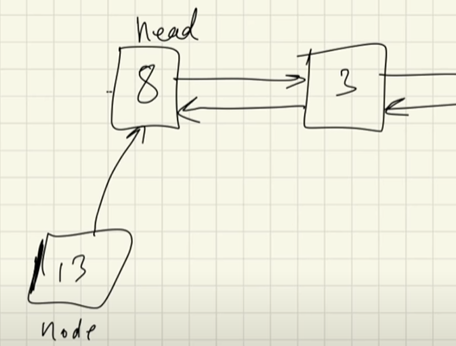 head
8
3
13
node